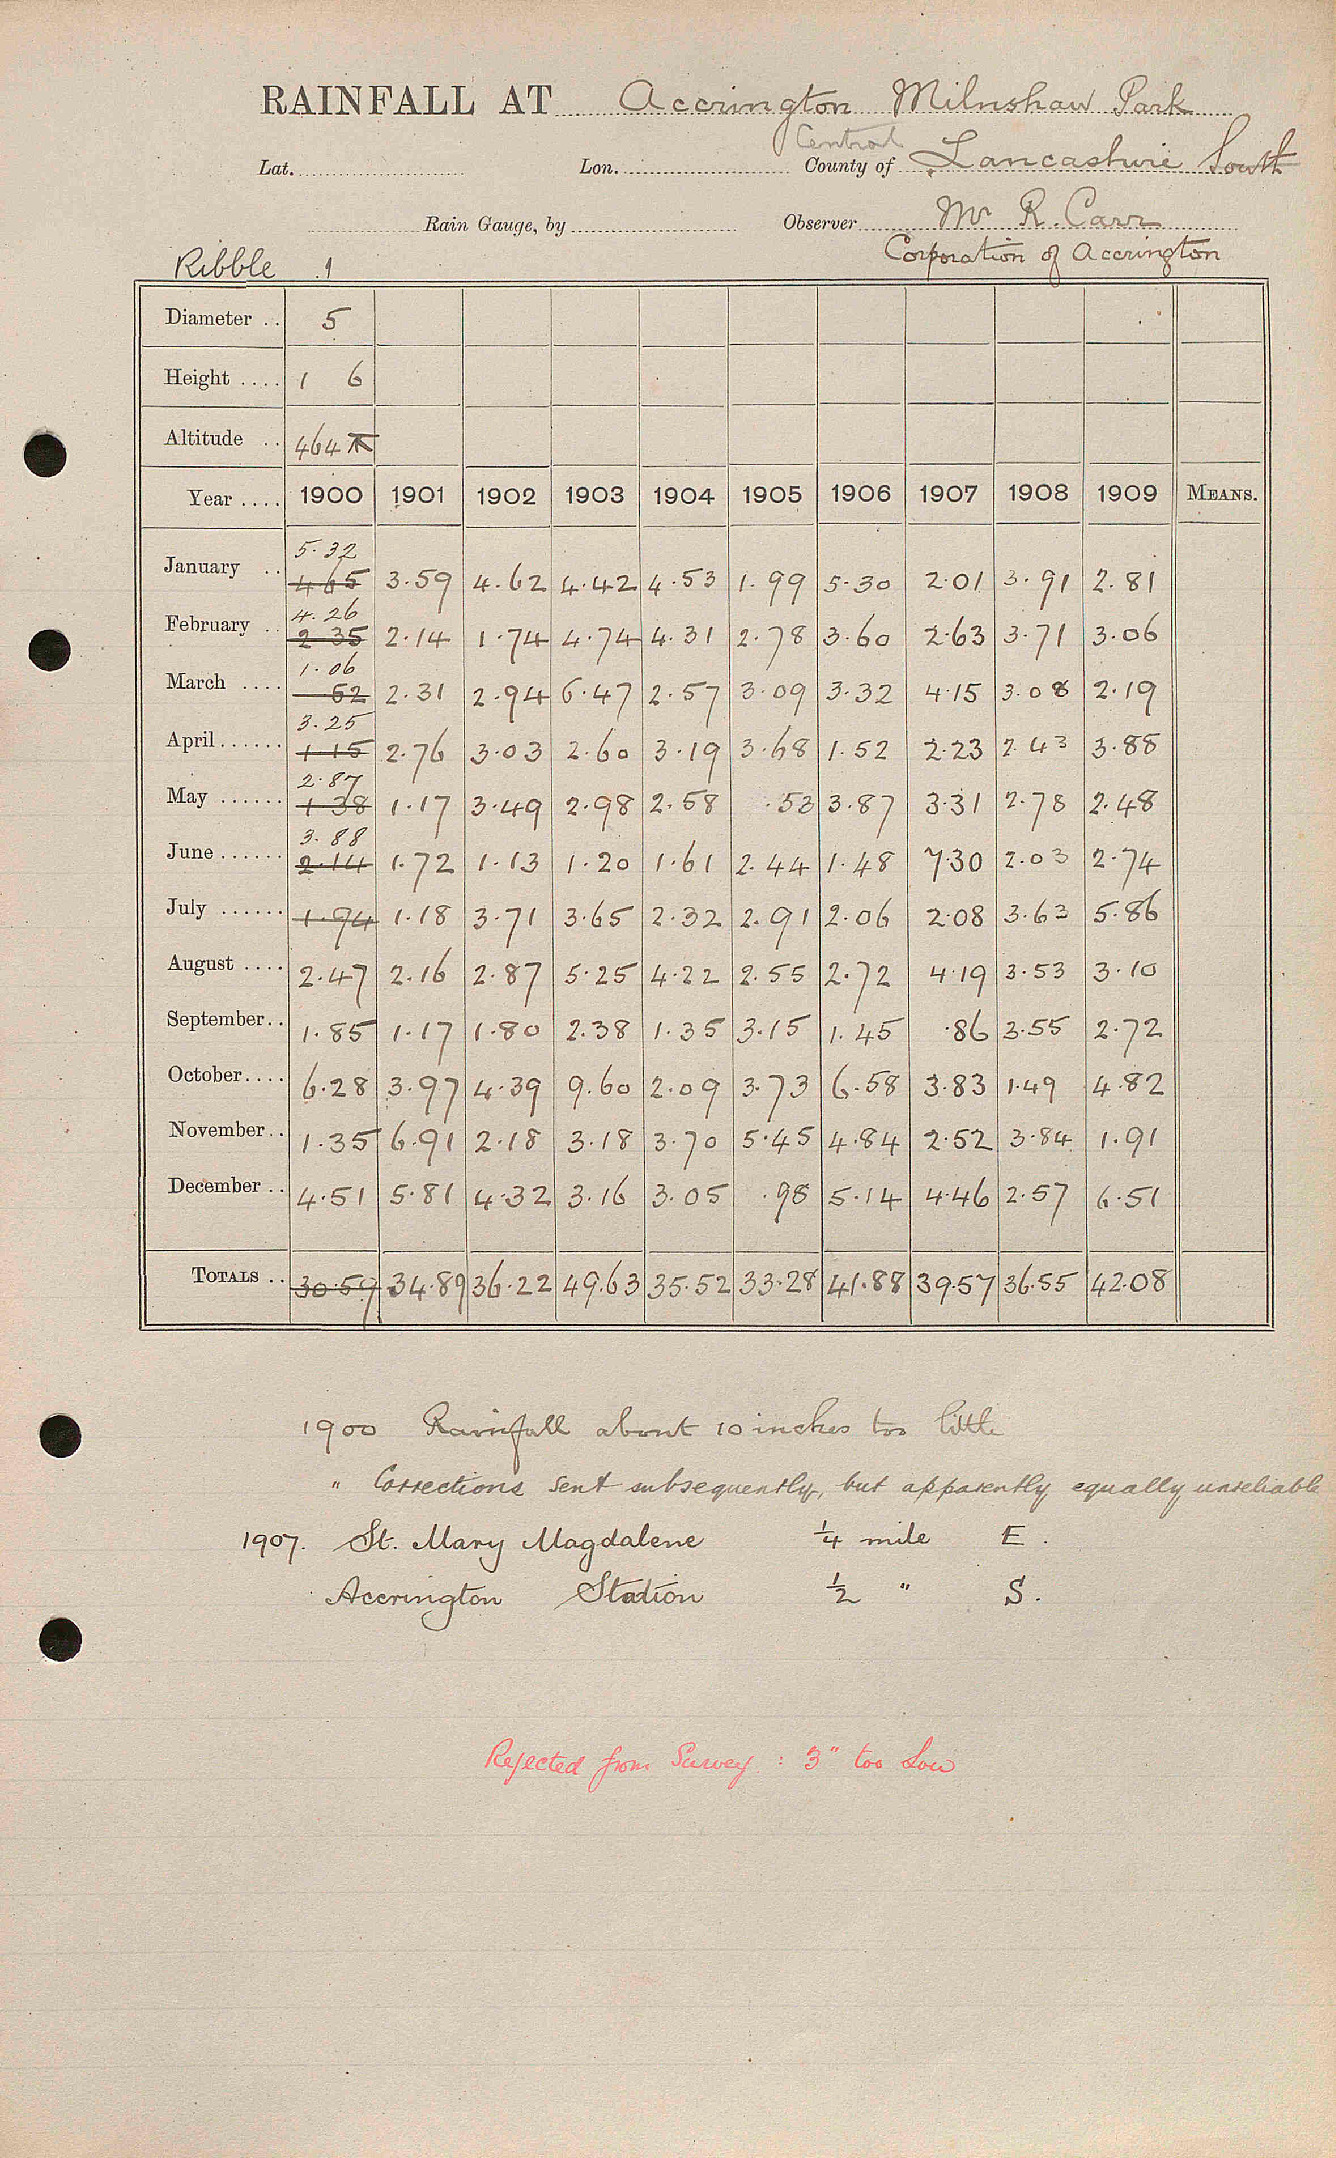 RAINFALL AT Accrington Milnshaw Park
Central
Lat. Lon. County of Lancashire South
Rain Gauge, by Observer Mr R. Carr
Corporation of Accrington
Ribble 1
Diameter .. 5
Height .... 1 6
Altitude .. 464
Year .... 1900 1901 1902 1903 1904 1905 1906 1907 1908 1909 MEANS.
5.32
January .. 4.65 3.59 4.62 4.42 4.53 1.99 5.30 2.01 3.91 2.81
4.26
February .. 2.35 2.14 1.74 4.74 4.31 2.78 3.60 2.63 3.71 3.06
1.06
March .... .52 2.31 2.94 6.47 2.57 3.09 3.32 4.15 3.08 2.19
3.25
April ...... 1.15 2.76 3.03 2.60 3.19 3.68 1.52 2.23 2.43 3.88
2.87
May ...... 1.38 1.17 3.49 2.98 2.58 .53 3.87 3.31 2.78 2.48
3.88
June ...... 2.14 1.72 1.13 1.20 1.61 2.44 1.48 7.30 2.03 2.74
July ...... 1.94 1.18 3.71 3.65 2.32 2.91 2.06 2.08 3.63 5.86
August .... 2.47 2.16 2.87 5.25 4.22 2.55 2.72 4.19 3.53 3.10
September .. 1.85 1.17 1.80 2.38 1.35 3.15 1.45 .86 3.55 2.72
October .... 6.28 3.97 4.39 9.60 2.09 3.73 6.58 3.83 1.49 4.82
November .. 1.35 6.91 2.18 3.18 3.70 5.45 4.84 2.52 3.84 1.91
December .. 4.51 5.81 4.32 3.16 3.05 .98 5.14 4.46 2.57 6.51
TOTALS .. 30.59 34.89 36.22 49.63 35.52 33.28 41.88 39.57 36.55 42.08
1900 Rainfall about 10 inches too little
" Corrections sent subsequently, but apparently equally unreliable
1907. St. Mary Magdalene 1/4 mile E.
Accrington Station 1/2 " S.
Rejected from Survey : 3" too low